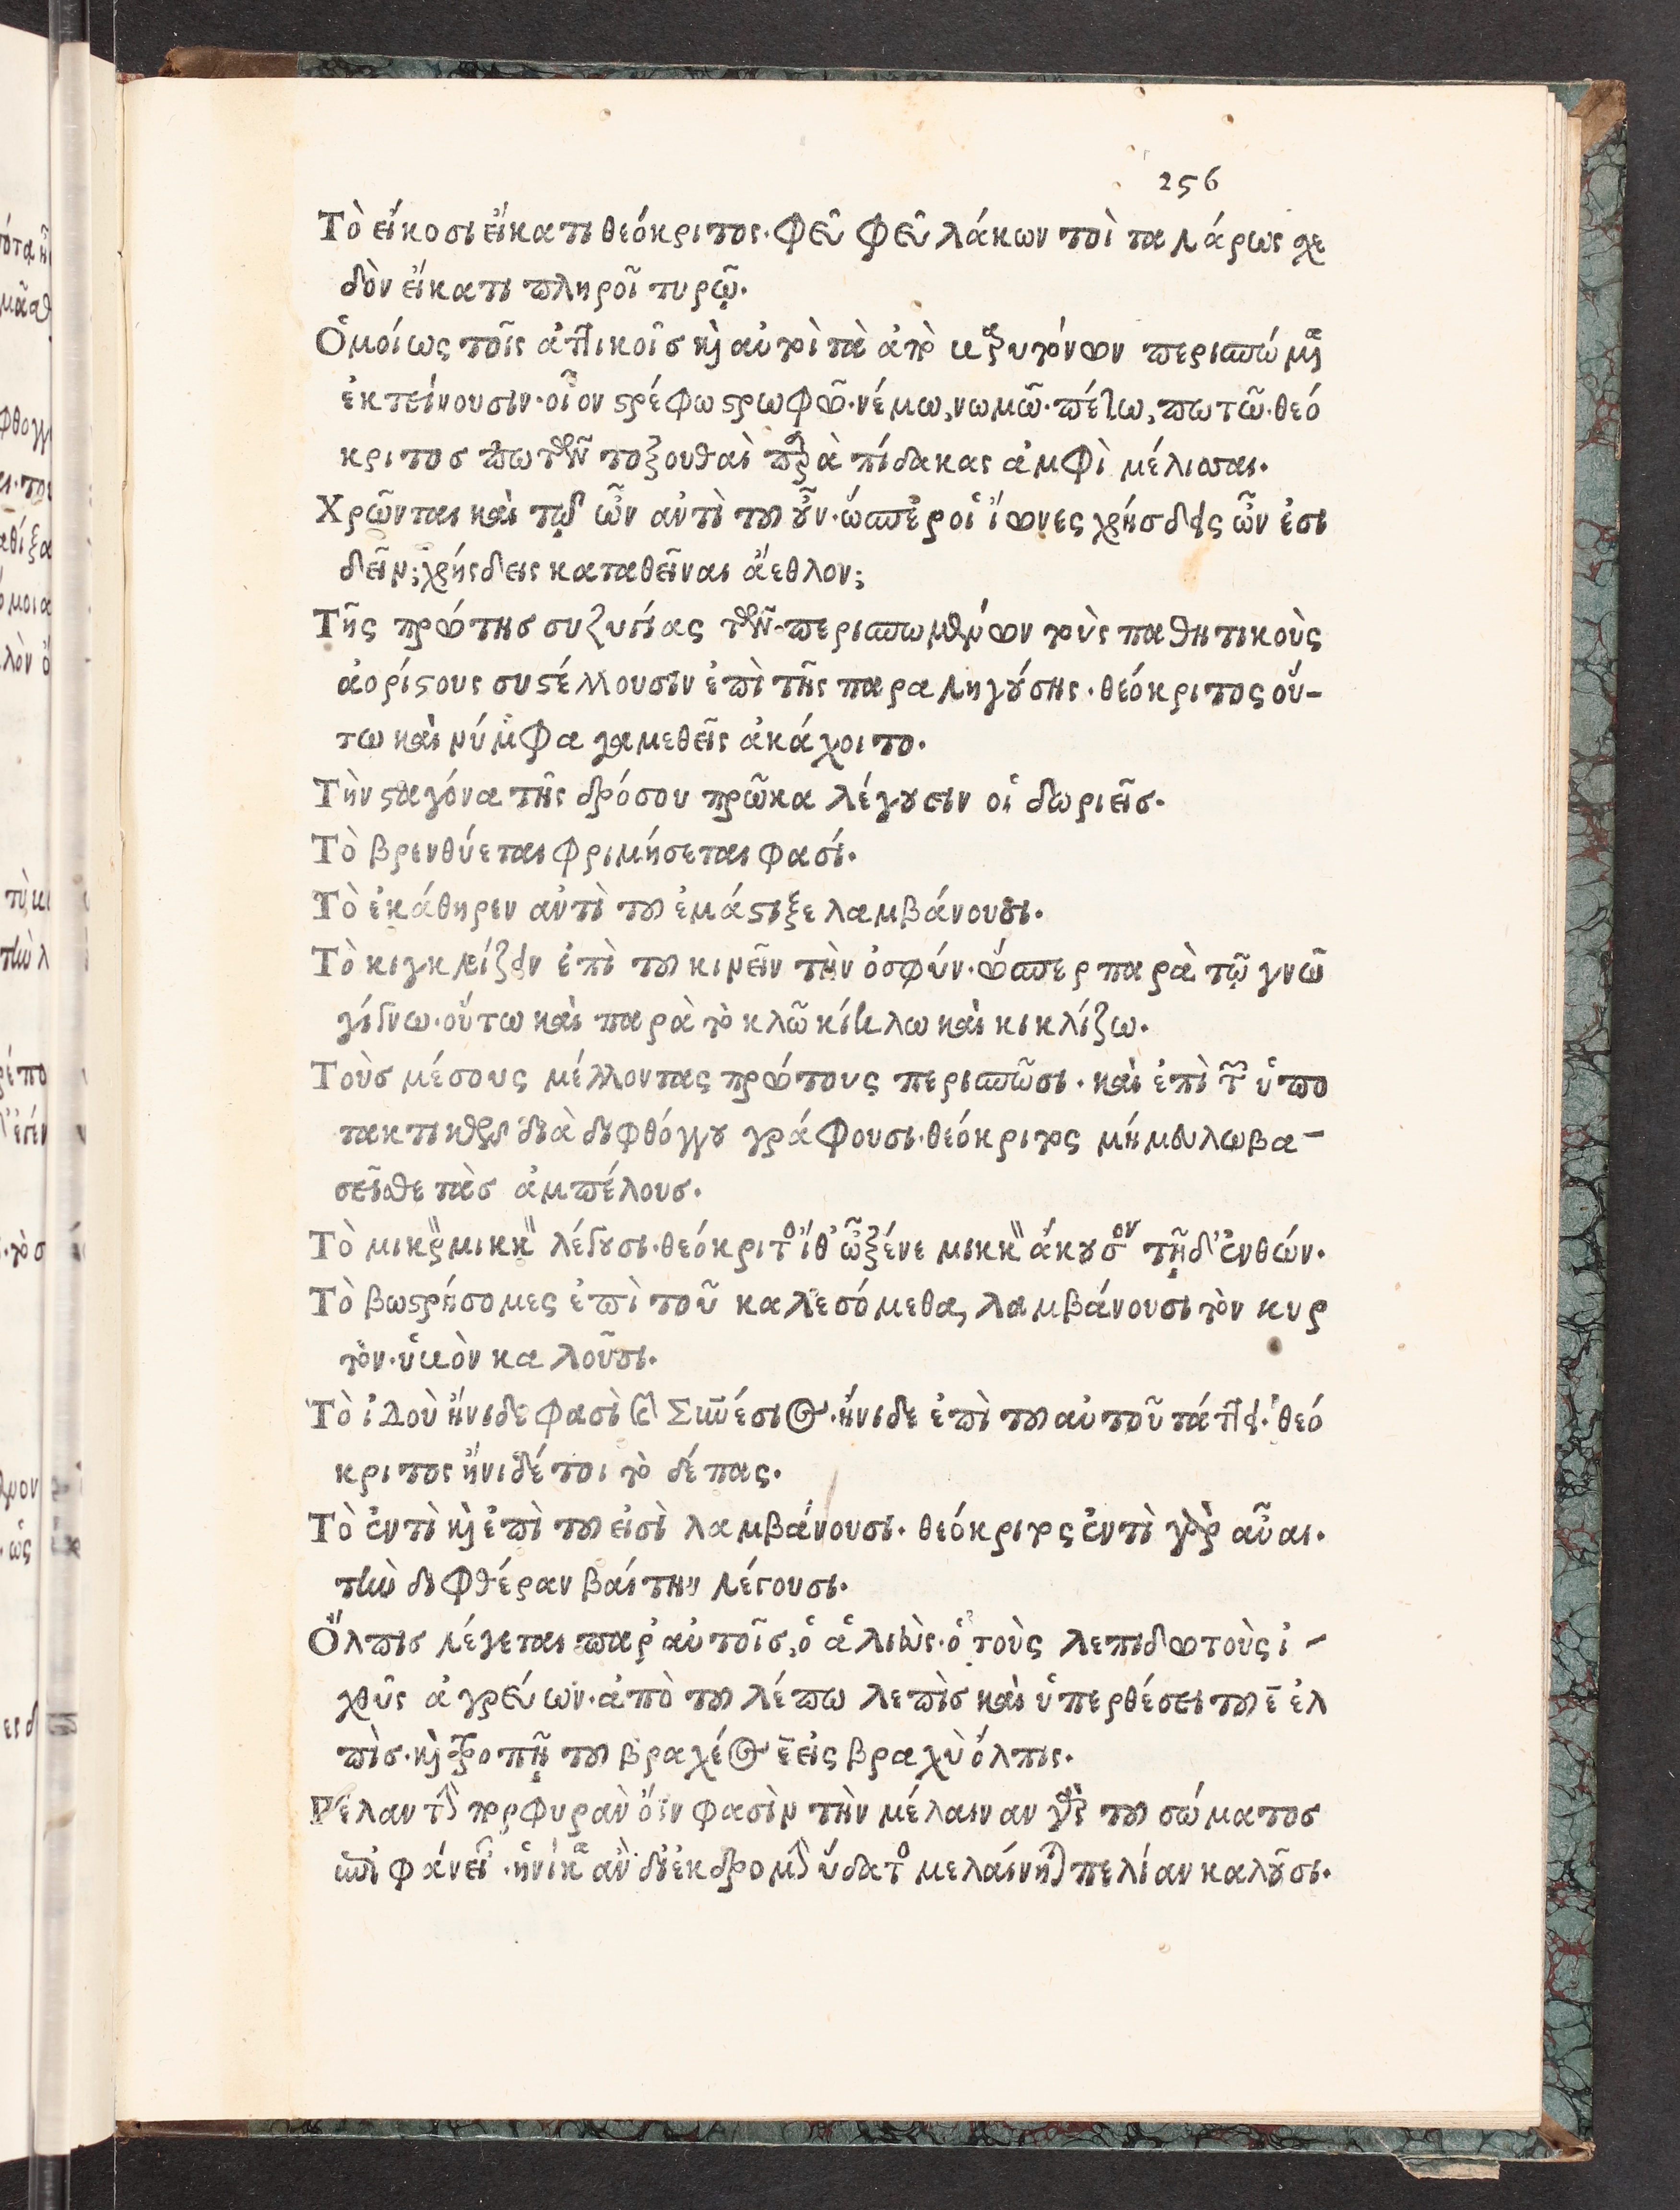 256
Τὸ εἴκοσι εἴκατι θεόκριτος. Φεῦ Φεῦ λάκων τοὶ ταλάρως σχε
δὸν εἴκατι πληροῖ τυρῶ.
Ὁμοίως τοῖς ἀττικοῖσ καὶ αὐτοὶ τὰ ἀπὸ περισπώμενα
ἐκτείνουσιν. οἷον στρέφω στρωφῶ. νέμω, νωμῶ. πέτω, πωτῶ. θεό
κριτοσ πωτῶντο ξουθαὶ περὰ πίδακας ἀμφὶ μέλισσαι.
Χρῶνται καὶ τῶ ὦν ἀντὶ τοῦ οὖν. ὥσπερ οἱ ἴωνες χρήσδεις ὦν ἐσι
δεῖν; χρήσδεις καταθεῖναι ἄεθλον;
Τῆς πρώτησ συζυγίας τῶν περισπωμένων τοὺς παθητικοὺς
ἀορίστους συστέλλουσιν ἐπὶ τῆς παραληγούσης. θεόκριτος οὕ-
τω καὶ νύμφα γαμεθεῖς ἀκάχοιτο.
Τὴν σταγόνα τῆς δρόσου πρῶκα λέγουσιν οἱ δωριεῖσ.
Τὸ βρενθύεται φριμήσεται φασί.
Τὸ ἐκάθηρεν ἀντὶ τοῦ ἐμάστιξε λαμβάνουσι.
Τὸ κιγκλίζειν ἐπὶ τοῦ κινεῖν τὴν ὀσφύν. ὥσπερ παρὰ τῶ γνῶ
γίγνω. οὕτω καὶ παρὰ τὸ κλῶ καὶ κικλίζω.
Τοὺσ μέσους μέλλοντας πρώτους περισπῶσι. καὶ ἐπὶ τῶν ὑπο
τακτικῶν διὰ διφθόγγου γράφουσι. θεόκριτος μή μευ λωβα-
σεῖσθε τὰσ ἀμπέλουσ.
Τὸ μικρὸν μικκὸν λέγουσι. θεόκριτος ἴθ' ὦ ξένε μικκὸν ἄκουσον τῇδ' ἐνθών.
Τὸ βωστρήσομες ἐπὶ τοῦ καλεσόμεθα, λαμβάνουσι τὸν κυρ
τὸν. καλοῦσι.
Τὸ ἰδοὺ ἤνιδε φασὶ . ἤνιδε ἐπὶ τοῦ αὐτοῦ τάττει. θεό
κριτος ἤνιδέ τοι τὸ δέπας.
Τὸ ἐντὶ καὶ ἐπὶ τοῦ εἰσὶ λαμβάνουσι. θεόκριτος ἐντὶ γὰρ αὖαι.
τὴν διφθέραν βαίτην λέγουσι.
Ὄλπισ λέγεται παρ' αὐτοῖσ, ὁ ἁλιεὺς. ὁ τοὺς λεπιδωτοὺς ἰ-
χθῦς ἀγρεύων. ἀπὸ τοῦ λέπω λεπὶσ καὶ ὑπερθέσει τοῦ ε ἐλ
πὶσ. καὶ τροπῇ τοῦ βραχέος ε εἰς βραχὺ ὄλπις.
Πέλαν πορφυρὰν ὄϊν φασὶν τὴν μέλαιναν τοῦ σώματοσ
ἐπιφάνει . ἡνίκα ἂν ὕδατος μελαίνηται πελίαν καλοῦσι.